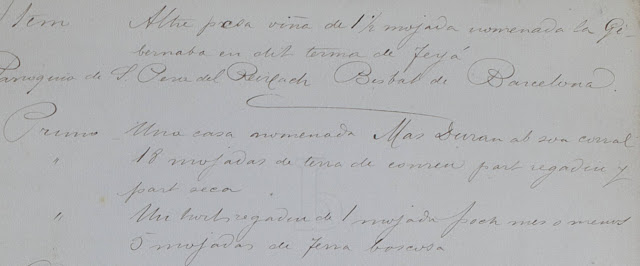 Item Altre pesa viña de 1½ mojada nomenada la Gi-
bernaba en dit terma de Teyá
Parroquia de S Pere del Bisbat de Barcelona.
Primo Una casa nomenada Mas Duran ab son corral
" 18 mojadas de terra de conreu part regadiu y
part seca
" Un hort regadiu de 1 mojada poch mes o menos
5 mojadas de Terra boscosa